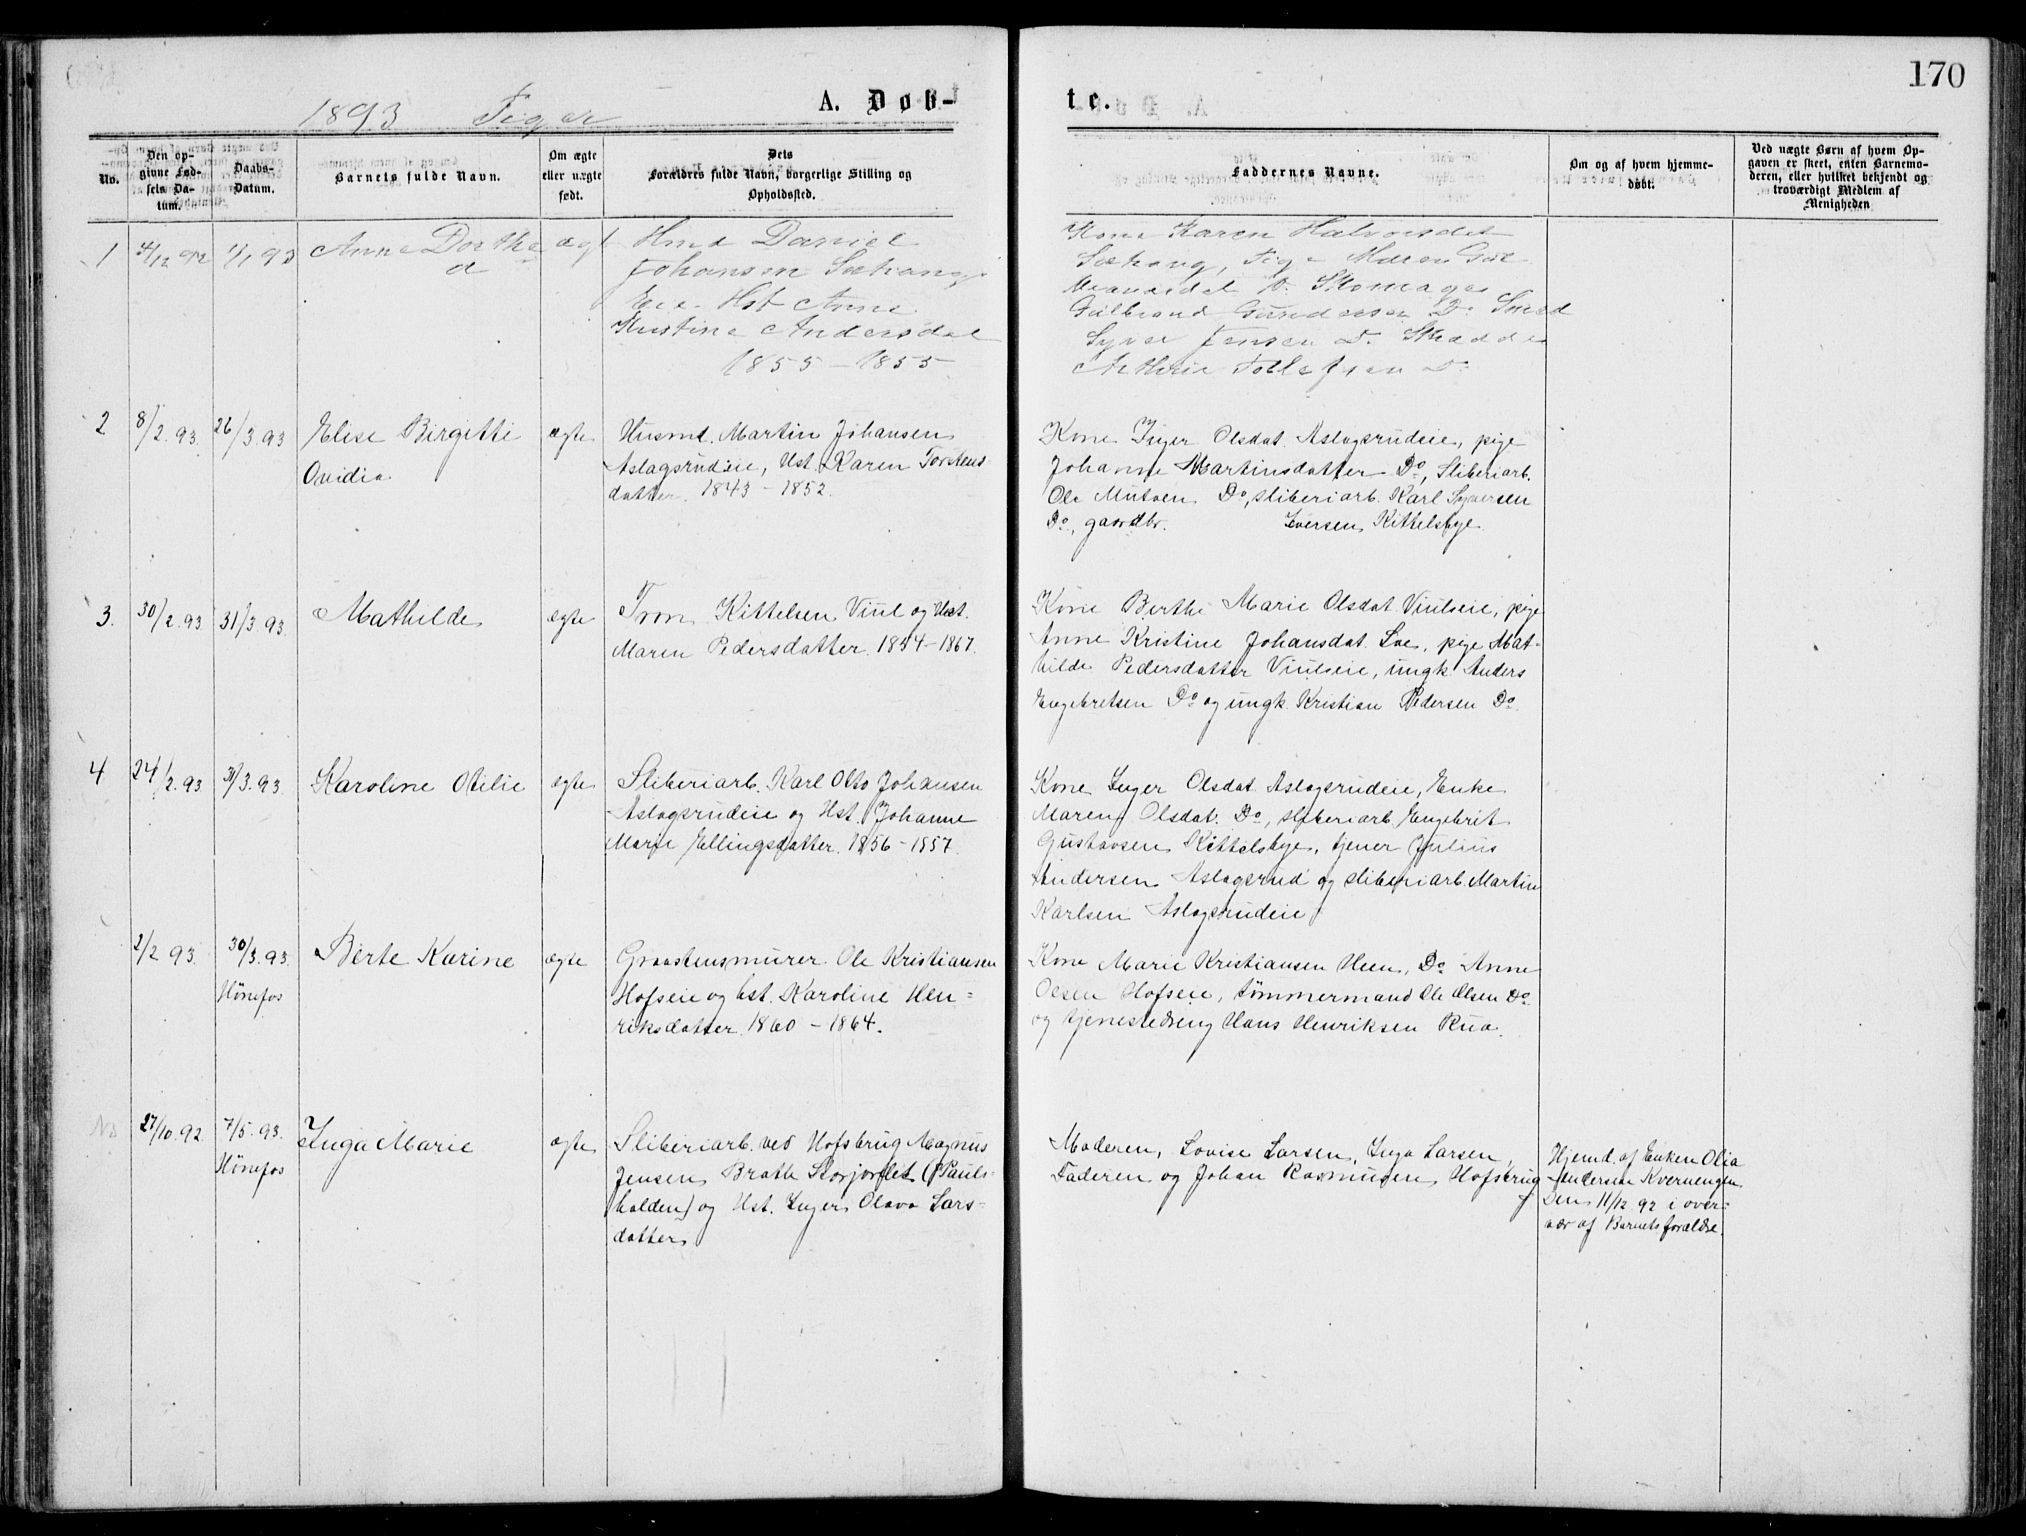 170
1893 Piger
A. Døb-
te.
No.
Den op-
givne Fød-
sels Da-
tum.
Daabs-
Datum.
Barnets fulde Navn.
Om ægte
eller uægte
født.
Dets
Forældres fulde Navn, borgerlige Stilling og
Opholdssted.
Faddernes Navne.
Om og af hvem hjemme-
døbt.
Ved uægte Børn af hvem Op-
gaven er skeet, enten Barnemo-
deren, eller hvilket bekjendt og
troværdigt Medlem af
Menigheden
1
4/12 92
1/1 93
Anne Dorthe
a
ægt
Hmd Daniel
Johansen Sæhaug
Eie Hst Anne
Kristine Andersdat
1855 - 1855
Kone Karen Halvorsdat
Sæhaug, Pige Maren Gul
Gulbrand Gundersen Do Smed
Syver Jensen Do
Tollefsen Do
2
8/2.93.
26/3.93
Elise Birgitte
Ovidia
ægte
Husmd. Martin Johansen
Aslagsrudeie, Hst. Karen Torstens-
datter. 1843 - 1852.
Kone Inger Olsdat. Aslagsrudeie, pige
Johanne Martinsdatter Do, Sliberiarb.
Ole Do, sliberiarb. Karl Syversen
Do, gaardbr. Iversen Kittelsbye.
3.
30/2.93
31/3.93.
Mathilde
ægte
Tron Kittelsen Viul og Hst.
Maren Pedersdatter. 1854-1867.
Kone Berthe Marie Olsdat. Viulseie, pige
Anne Kristine Johansdat. Loe, pige Mat-
hilde Pedersdatter Viulseie, ungk. Anders
Engebretsen Do og ungk. Kristian Pedersen Do.
4
24/2.93
31/3.93.
Karoline Otilie
ægte
Sliberiarb. Karl Otto Johansen
Aslagsrudeie og Hst. Johanne
Marie Ellingsdatter. 1856-1857.
Kone Inger Olsdat. Aslagsrudeie, Enke
Maren Olsdat. Do, sliberiarb. Engebrit
Gustavsen Kittelsbye, tjener Julius
Andersen Aslagsrud og sliberiarb. Martin
Karlsen Aslagsrudeie
2/2 93.
30/3.93.
Hönefos
Berte Karine
ægte
Graastensmurer Ole Kristiansen
Hofseie og hst. Karoline Hen=
riksdatter. 1860 - 1864.
Kone Marie Kristiansen Heen, Do Anne
Olsen Hofseie, tömmermand Ole Olsen Do
og tjenestedreng Hans Henriksen Rua.
No
27/10.92
7/5.93.
Hönefos
Inga Marie
ægte
Sliberiarb. ved Hofsbrug Magnus
Jensen Brath Storjordet (Pauls-
holden) og Hst. Inger Olava Lars-
datter
Moderen, Lovise Larsen, Inga Larsen,
Faderen og Johan Rasmusen Hofsbrug
Hjemd. af Enken Olia
Andersen Kvernengen
Den 11/12 92 i over-
vær af Barnets forældre.